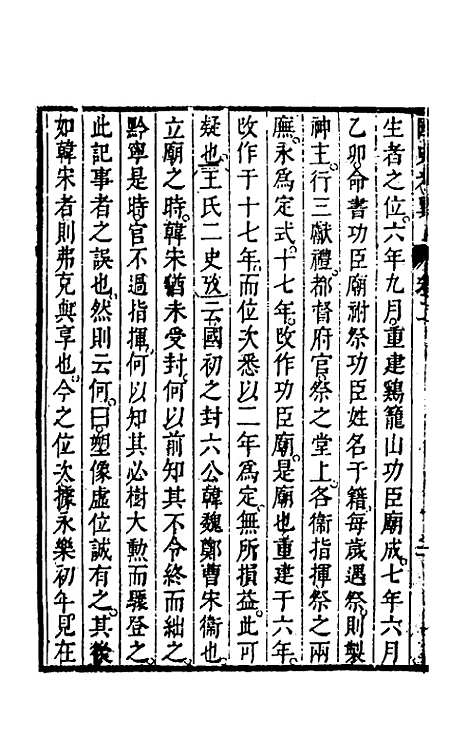 生者之位。六年九月。重建鷄籠山功臣廟成。七年六月
乙卯。命書功臣廟祔祭功臣姓名于籍。每歲遇祭。則製
神主。行三獻禮。都督府官祭之堂上。各衞指揮祭之兩
廡。永爲定式。十七年。改作功臣廟。是廟也。重建于六年。
改作于十七年。而位次悉以二年爲定。無所損益。此可
疑也。王氏二史攷云。國初之封六公。韓魏鄭曹宋衞也。
立廟之時。韓宋猶未受封。何以前知其不令終而絀之。
黔寧是時。官不過指揮。何以知其必樹大勲而驟登之。
此記事者之誤也。然則云何。曰。塑像虛位。誠有之。其後
如韓宋者。則弗克與享也。今之位次。據永樂初年見在